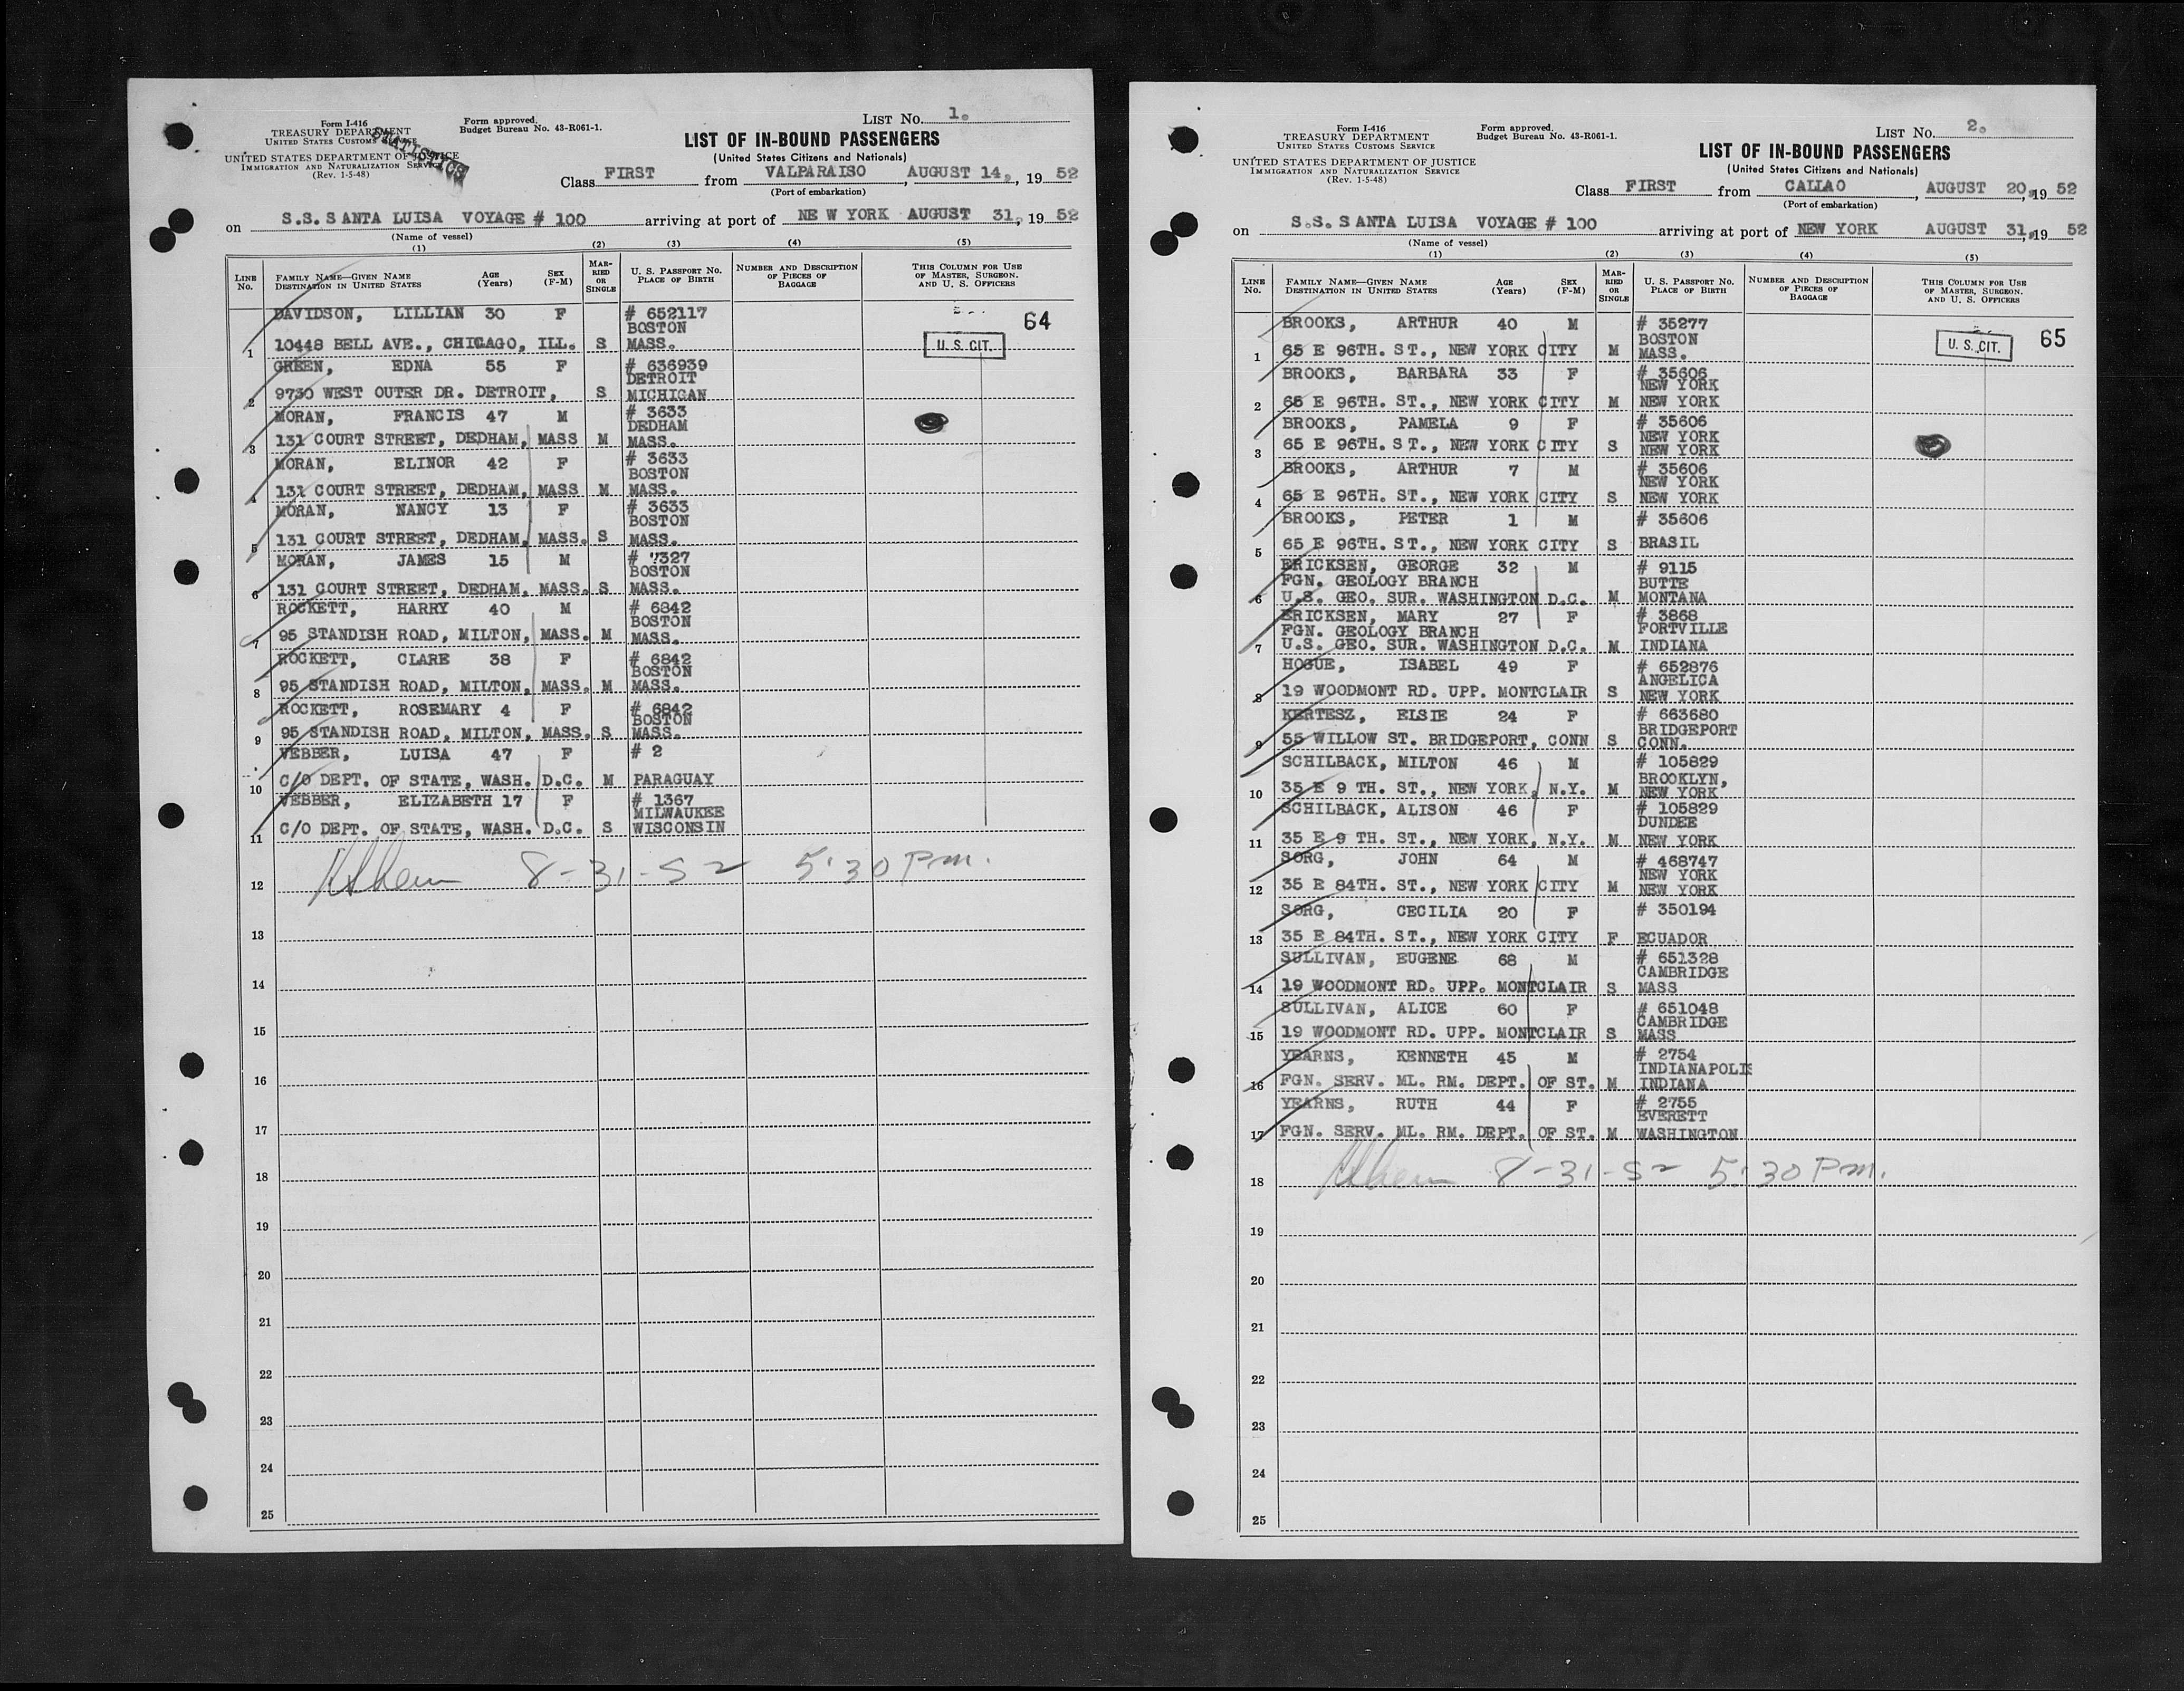 Form I-416
TREASURY DEPARTMENT
UNITED STATES CUSTOMS SERVICE
UNITED STATES DEPARTMENT OF JUSTICE
IMMIGRATION AND NATURALIZATION SERVICE
(Rev. 1-5-48)
STATISTICS
Form approved.
Budget Bureau No. 43-R061-1.
LIST No. 1.
LIST OF IN-BOUND PASSENGERS
(United States Citizens and Nationals)
Class FIRST from VALPARAISO, AUGUST 14, 1952
(Port of embarkation)
on S.S. SANTA LUISA VOYAGE # 100 arriving at port of NEW YORK AUGUST 31, 1952
(Name of vessel)
(1) (2) (3) (4) (5)
LINE No. FAMILY NAME—GIVEN NAME DESTINATION IN UNITED STATES AGE (Years) SEX (F-M) MARRIED OR SINGLE U. S. PASSPORT No. PLACE OF BIRTH NUMBER AND DESCRIPTION OF PIECES OF BAGGAGE THIS COLUMN FOR USE OF MASTER, SURGEON, AND U. S. OFFICERS
DAVIDSON, LILLIAN 30 F # 652117 64
BOSTON
1 10448 BELL AVE., CHICAGO, ILL. S MASS. U. S. CIT.
GREEN, EDNA 55 F # 636939
DETROIT
2 9730 WEST OUTER DR. DETROIT, S MICHIGAN
MORAN, FRANCIS 47 M # 3633
DEDHAM
3 131 COURT STREET, DEDHAM, MASS M MASS.
MORAN, ELINOR 42 F # 3633
BOSTON
4 131 COURT STREET, DEDHAM, MASS M MASS.
MORAN, NANCY 13 F # 3633
BOSTON
5 131 COURT STREET, DEDHAM, MASS. S MASS.
MORAN, JAMES 15 M # 7327
BOSTON
6 131 COURT STREET, DEDHAM, MASS. S MASS.
ROCKETT, HARRY 40 M # 6842
BOSTON
7 95 STANDISH ROAD, MILTON, MASS. M MASS.
ROCKETT, CLARE 38 F # 6842
BOSTON
8 95 STANDISH ROAD, MILTON, MASS. M MASS.
ROCKETT, ROSEMARY 4 F # 6842
BOSTON
9 95 STANDISH ROAD, MILTON, MASS. S MASS.
VEBBER, LUISA 47 F # 2
10 C/O DEPT. OF STATE, WASH. D.C. M PARAGUAY
VEBBER, ELIZABETH 17 F # 1367
MILWAUKEE
11 C/O DEPT. OF STATE, WASH. D.C. S WISCONSIN
12 8-31-52 5:30 Pm.
13
14
15
16
17
18
19
20
21
22
23
24
25
Form I-416
TREASURY DEPARTMENT
UNITED STATES CUSTOMS SERVICE
UNITED STATES DEPARTMENT OF JUSTICE
IMMIGRATION AND NATURALIZATION SERVICE
(Rev. 1-5-48)
Form approved.
Budget Bureau No. 43-R061-1.
LIST No. 2.
LIST OF IN-BOUND PASSENGERS
(United States Citizens and Nationals)
Class FIRST from CALLAO, AUGUST 20, 1952
(Port of embarkation)
on S.S. SANTA LUISA VOYAGE # 100 arriving at port of NEW YORK AUGUST 31, 1952
(Name of vessel)
(1) (2) (3) (4) (5)
LINE No. FAMILY NAME—GIVEN NAME DESTINATION IN UNITED STATES AGE (Years) SEX (F-M) MARRIED OR SINGLE U. S. PASSPORT No. PLACE OF BIRTH NUMBER AND DESCRIPTION OF PIECES OF BAGGAGE THIS COLUMN FOR USE OF MASTER, SURGEON, AND U. S. OFFICERS
BROOKS, ARTHUR 40 M # 35277 65
BOSTON
1 65 E 96TH. ST., NEW YORK CITY M MASS. U. S. CIT.
BROOKS, BARBARA 33 F # 35606
NEW YORK
2 65 E 96TH. ST., NEW YORK CITY M NEW YORK
BROOKS, PAMELA 9 F # 35606
NEW YORK
3 65 E 96TH. ST., NEW YORK CITY S NEW YORK
BROOKS, ARTHUR 7 M # 35606
NEW YORK
4 65 E 96TH. ST., NEW YORK CITY S NEW YORK
BROOKS, PETER 1 M # 35606
5 65 E 96TH. ST., NEW YORK CITY S BRASIL
ERICKSEN, GEORGE 32 M # 9115
FGN. GEOLOGY BRANCH BUTTE
6 U.S. GEO. SUR. WASHINGTON D.C. M MONTANA
ERICKSEN, MARY 27 F # 3868
FGN. GEOLOGY BRANCH FORTVILLE
7 U.S. GEO. SUR. WASHINGTON D.C. M INDIANA
HOGUE, ISABEL 49 F # 652876
ANGELICA
8 19 WOODMONT RD. UPP. MONTCLAIR S NEW YORK
KERTESZ, ELSIE 24 F # 663680
BRIDGEPORT
9 55 WILLOW ST. BRIDGEPORT, CONN S CONN.
SCHILBACK, MILTON 46 M # 105829
BROOKLYN,
10 35 E 9 TH. ST., NEW YORK, N.Y. M NEW YORK
SCHILBACK, ALISON 46 F # 105829
DUNDEE
11 35 E 9 TH. ST., NEW YORK, N.Y. M NEW YORK
SORG, JOHN 64 M # 468747
NEW YORK
12 35 E 84TH. ST., NEW YORK CITY M NEW YORK
SORG, CECILIA 20 F # 350194
13 35 E 84TH. ST., NEW YORK CITY F ECUADOR
SULLIVAN, EUGENE 68 M # 651328
CAMBRIDGE
14 19 WOODMONT RD. UPP. MONTCLAIR S MASS
SULLIVAN, ALICE 60 F # 651048
CAMBRIDGE
15 19 WOODMONT RD. UPP. MONTCLAIR S MASS
YEARNS, KENNETH 45 M # 2754
INDIANAPOLIS
16 FGN. SERV. ML. RM. DEPT. OF ST. M INDIANA
YEARNS, RUTH 44 F # 2755
EVERETT
17 FGN. SERV. ML. RM. DEPT. OF ST. M WASHINGTON
18 8-31-52 5:30 Pm.
19
20
21
22
23
24
25